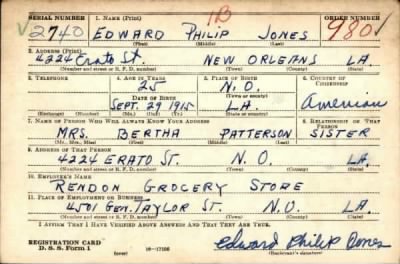 SERIAL NUMBER 1. NAME (Print) 1B ORDER NUMBER
V 2740 EDWARD PHILIP JONES 980
(First) (Middle) (Last)
2. ADDRESS (Print)
4224 Erato St. NEW ORLEANS LA.
(Number and street or R. F. D. number) (Town) (County) (State)
3. TELEPHONE 4. AGE IN YEARS 5. PLACE OF BIRTH 6. COUNTRY OF CITIZENSHIP
25 N.O.
DATE OF BIRTH (Town or county)
SEPT. 29 1915 LA. American
(Mo.) (Day) (Yr.) (State or country)
7. NAME OF PERSON WHO WILL ALWAYS KNOW YOUR ADDRESS 8. RELATIONSHIP OF THAT PERSON
MRS. BERTHA PATTERSON SISTER
(Mr., Mrs., Miss) (First) (Middle) (Last)
9. ADDRESS OF THAT PERSON
4224 ERATO ST. N.O. LA.
(Number and street or R. F. D. number) (Town) (County) (State)
10. EMPLOYER'S NAME
RENDON GROCERY STORE
11. PLACE OF EMPLOYMENT OR BUSINESS
4501 GEN. TAYLOR ST. N.O. LA.
(Number and street or R. F. D. number) (Town) (County) (State)
I AFFIRM THAT I HAVE VERIFIED ABOVE ANSWERS AND THAT THEY ARE TRUE.
REGISTRATION CARD
D. S. S. Form 1 (over) 16—17105 Edward Philip Jones
(Registrant's signature)